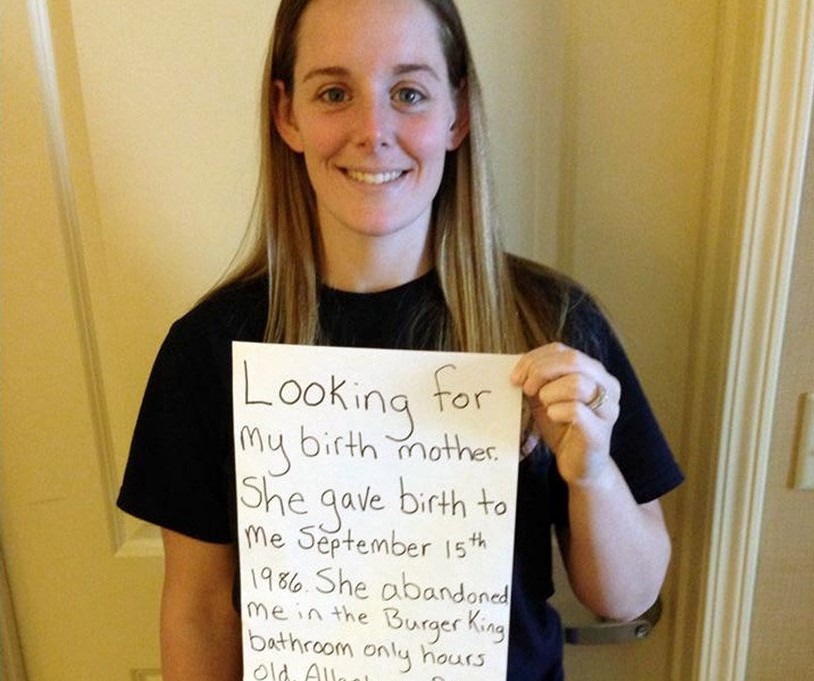 Looking for
my birth mother.
She gave birth to
me September 15th
1986. She abandoned
me in the Burger King
bathroom only hours
old.